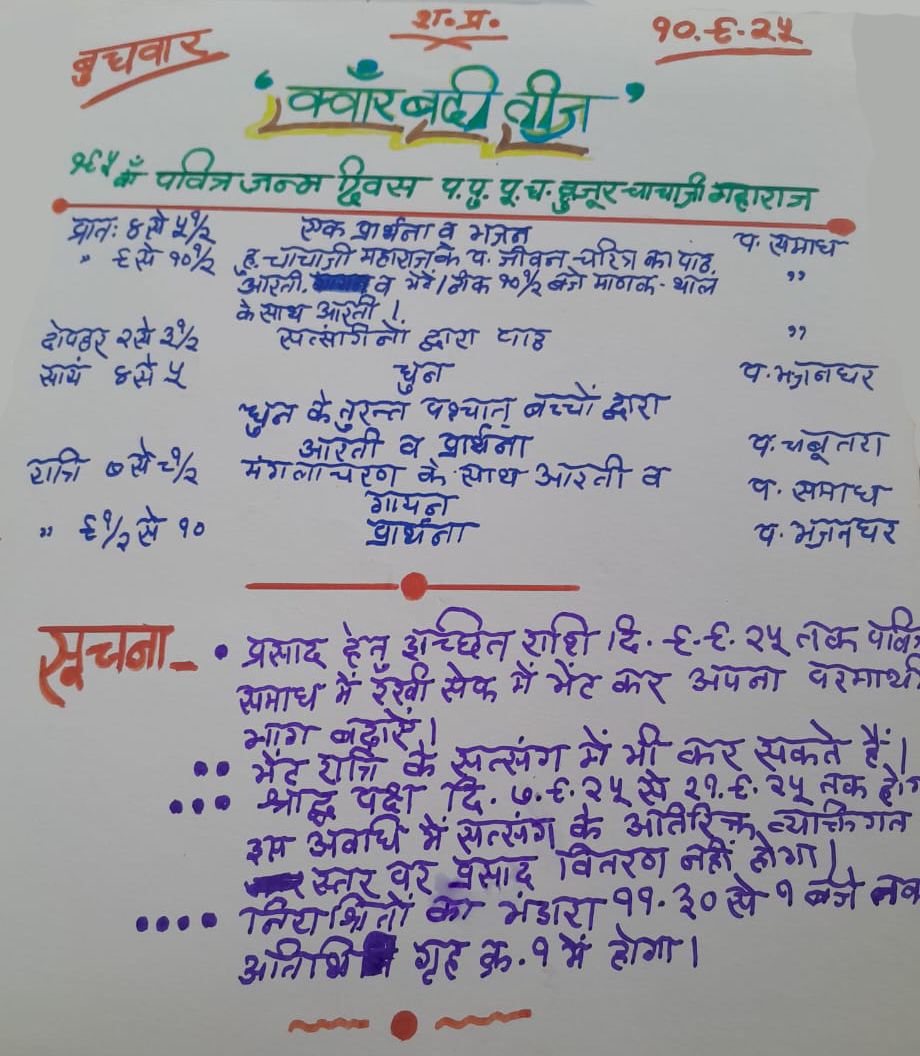 श. प्र.
बुधवार
१०.९.२५
'क्वाँर बदी तीज'
१९५ वाँ पवित्र जन्म दिवस प. पु. पू. च. हुजूर चाचाजी महाराज
प्रातः ४ से ५१/२ एक प्रार्थना व भजन प. समाध
" ९ से १०१/२ हु. चाचाजी महाराज के प. जीवन-चरित्र का पाठ, "
आरती. व भेंट। ठीक १०१/२ बजे माणक-थाल
के साथ आरती।
दोपहर २ से ३१/२ सत्संगिनों द्वारा पाठ "
सायं ४ से ५ धुन प. भजनघर
धुन के तुरन्त पश्चात् बच्चों द्वारा
आरती व प्रार्थना प. चबूतरा
रात्रि ७ से ८१/२ मंगलाचरण के साथ आरती व प. समाध
गायन
" ९१/२ से १० प्रार्थना प. भजनघर
सूचना - • प्रसाद हेतु इच्छित राशि दि. ९.९.२५ तक
समाध में रखी सेफ में भेंट कर अपना परमार्थी
भाग बढ़ायें।
•• भेंट रात्रि के सत्संग में भी कर सकते हैं।
••• श्राद्ध पक्ष दि. ७.९.२५ से २१.९.२५ तक
इस अवधि में सत्संग के अतिरिक्त व्यक्तिगत
स्तर पर प्रसाद वितरण नहीं होगा।
•••• निराश्रितों का भंडारा ११.३० से १ बजे तक
अतिथि गृह क्र. १ में होगा।